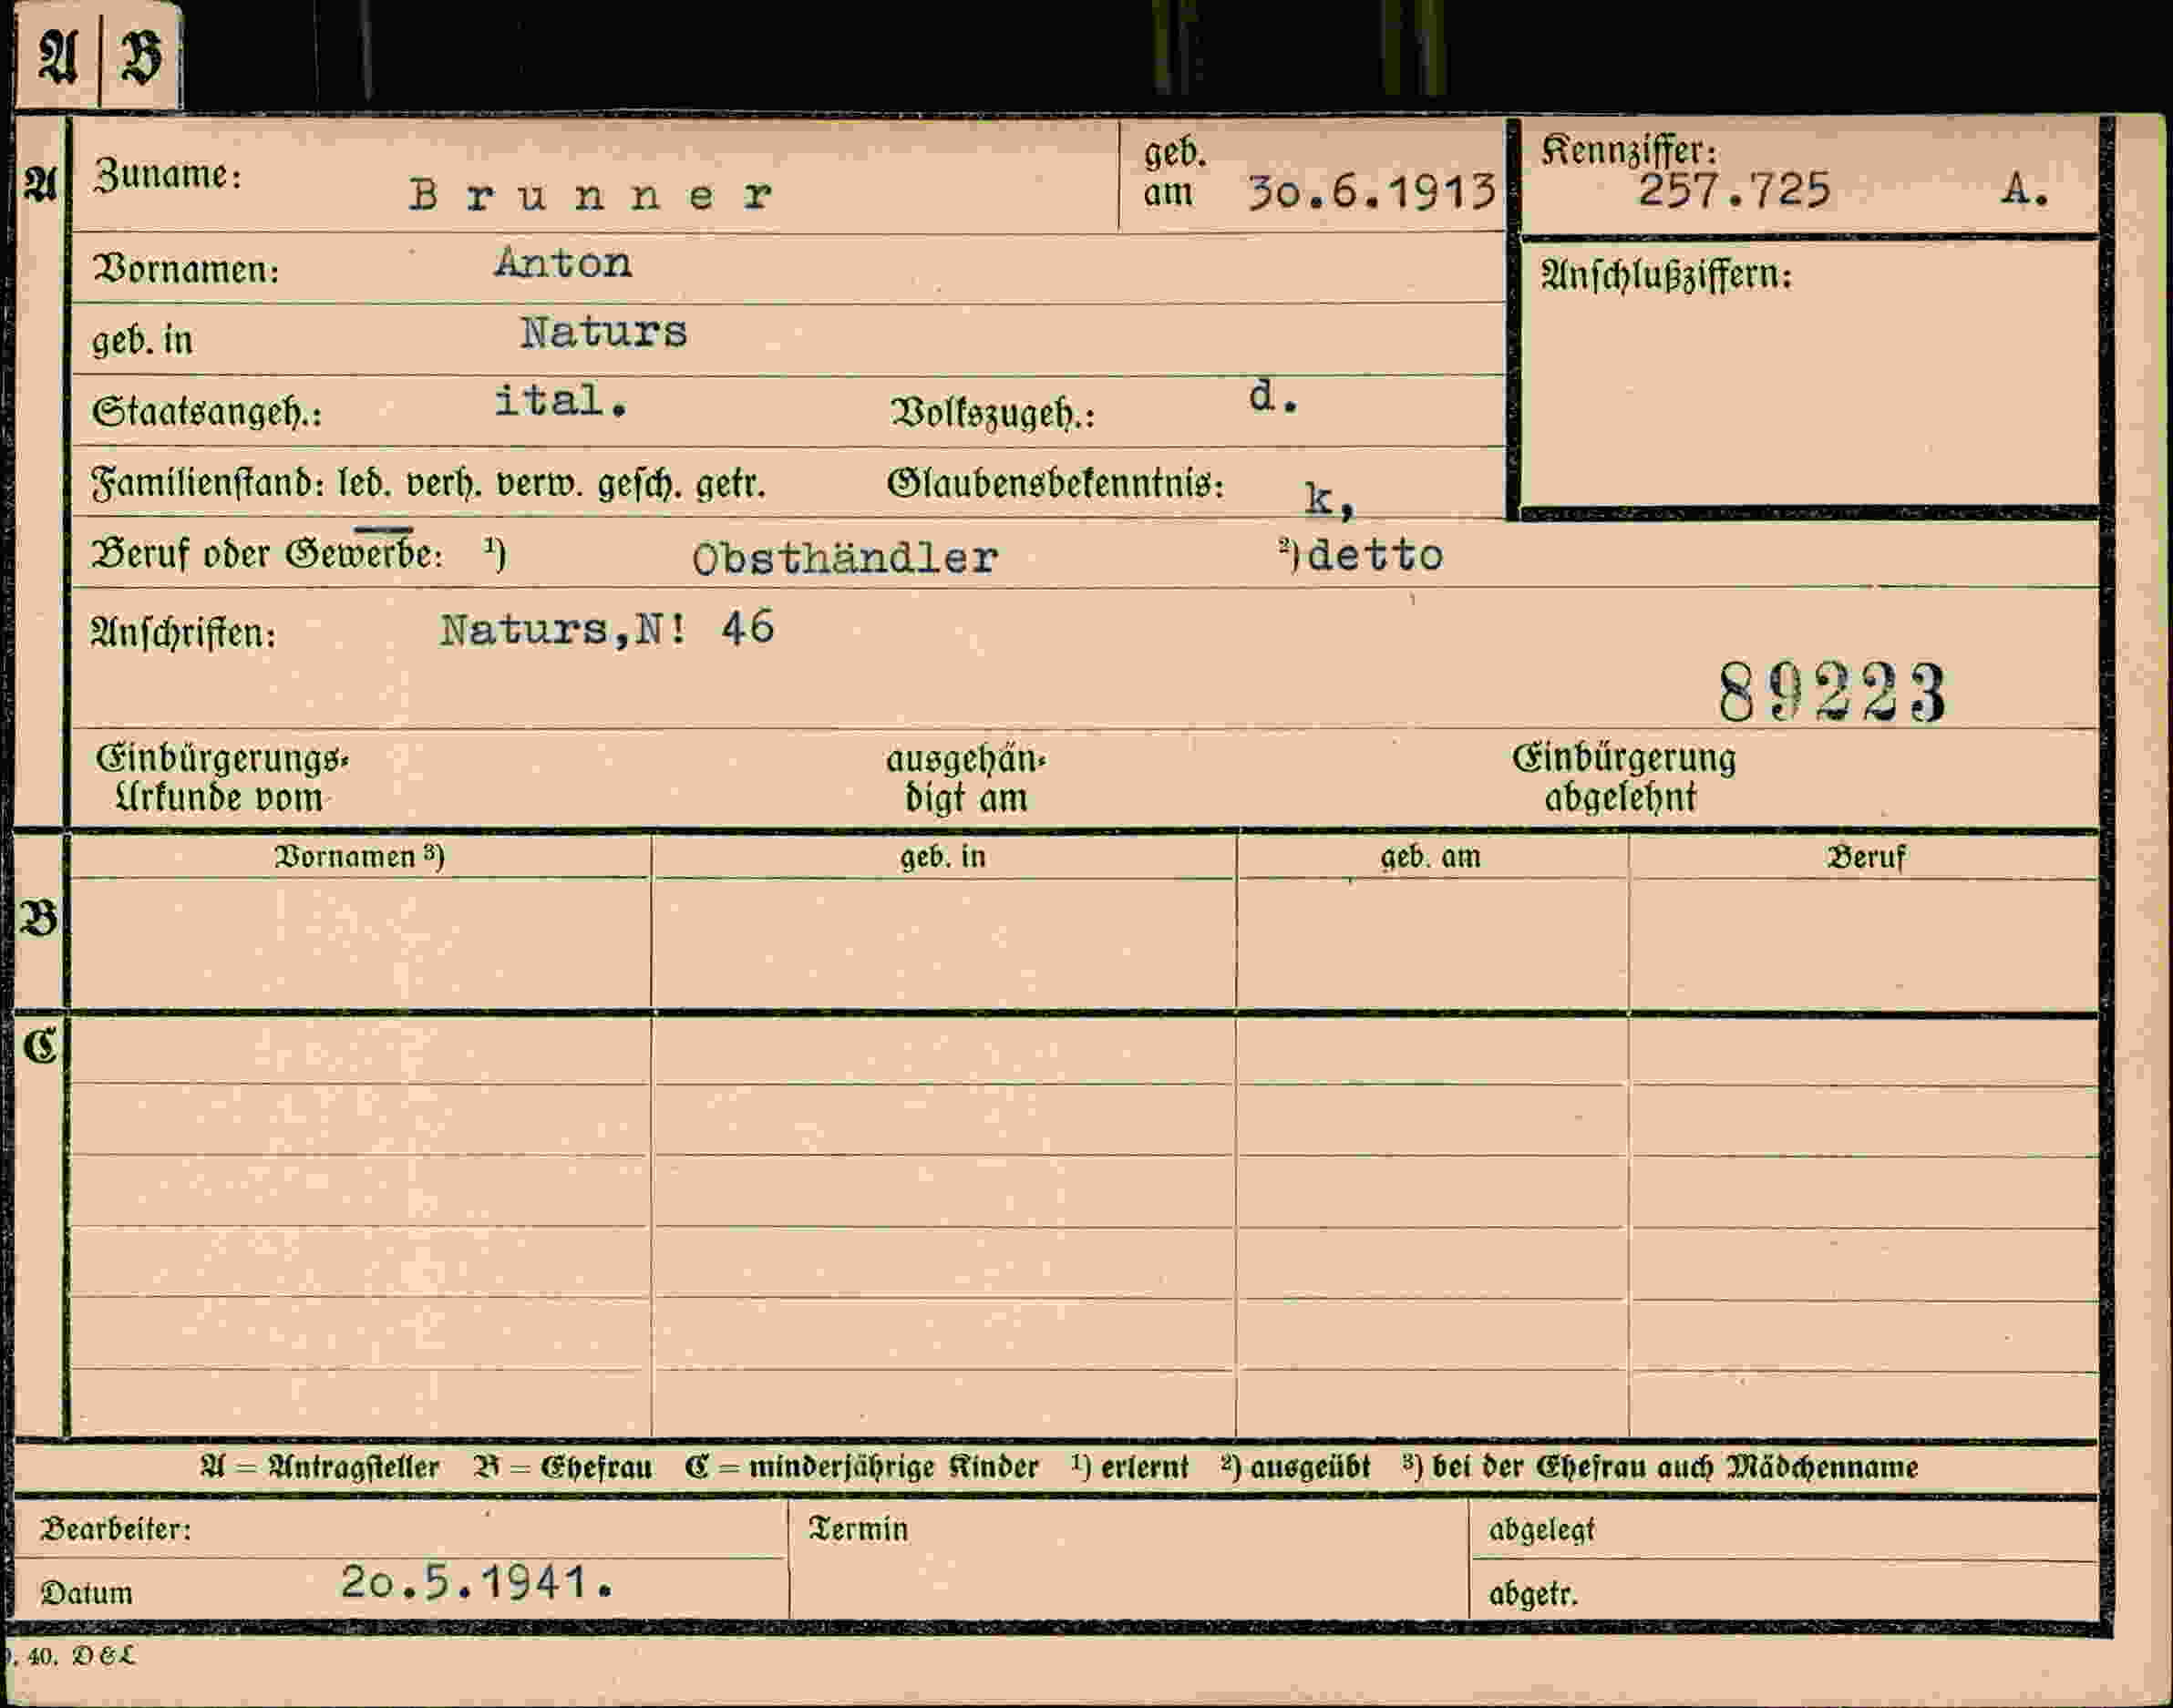 A B
A Zuname: Brunner geb. am 30.6.1913 Kennziffer: 257.725 A.
Vornamen: Anton Anschlußziffern:
geb. in Naturs
Staatsangeh.: ital. Volkszugeh.: d.
Familienstand: led. verh. verw. gesch. getr. Glaubensbekenntnis: k,
Beruf oder Gewerbe: ¹) Obsthändler ²) detto
Anschriften: Naturs,N! 46
89223
Einbürgerungs- ausgehän- Einbürgerung
Urkunde vom digt am abgelehnt
Vornamen ³) geb. in geb. am Beruf
B
C
A = Antragsteller B = Ehefrau C = minderjährige Kinder ¹) erlernt ²) ausgeübt ³) bei der Ehefrau auch Mädchenname
Bearbeiter: Termin abgelegt
Datum 20.5.1941. abgetr.
. 40. D & L